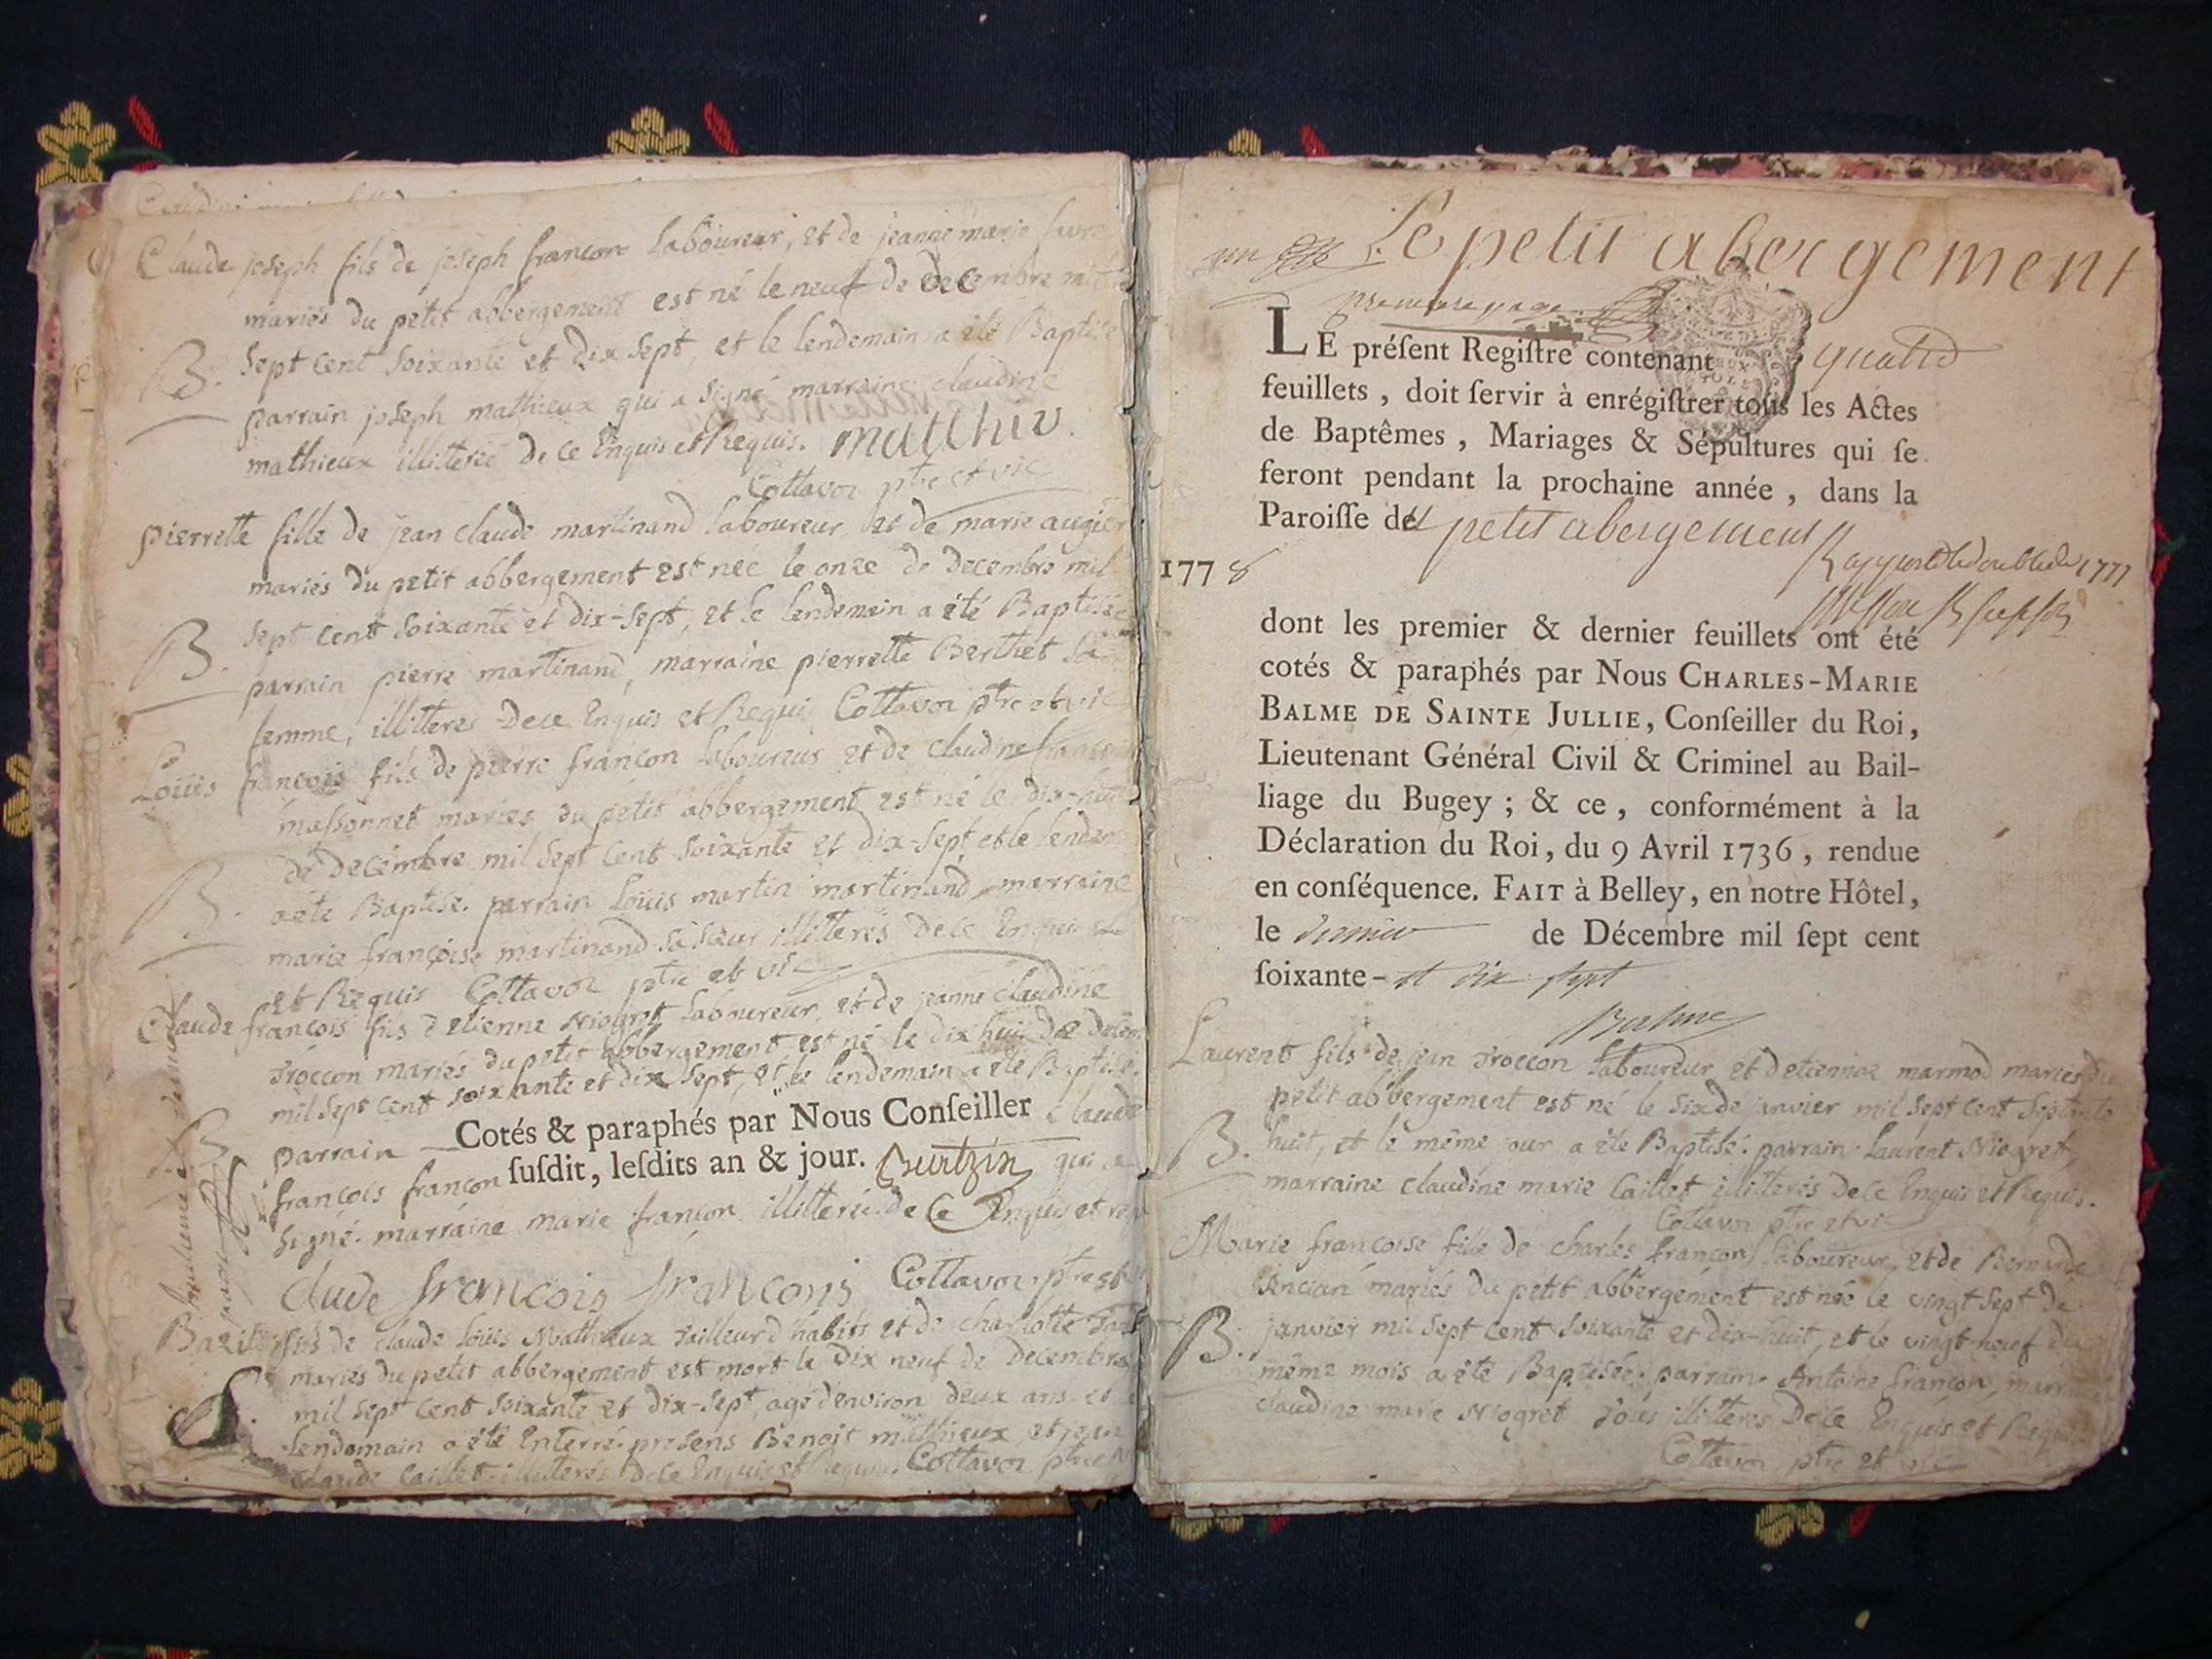 Claude joseph fils de joseph françon Laboureur, et de jeanne marie
mariés du petit abbergement est né le neuf de decembre mil
B. sept cent soixante et dix sept, et le lendemain a été Baptisé
parrain joseph mathieux qui a signé marraine claudine
mathieux illitérée de ce Enquis et Requis. matthiu
Cottavoz ptre et vic
pierrette fille de jean claude martinand laboureur et de marie augier
mariés du petit abbergement est née le onze de decembre mil
B. sept cent soixante et dix-sept, et le lendemain a été Baptisée
parrain pierre martinand, marraine pierrette Berthet sa
femme, illitteres de ce Enquis et Requis Cottavoz ptre et vic
Loüis françois fils de pierre françon laboureur et de claudine
massonnet mariés du petit abbergement est né le dix-huit
de decembre mil sept cent soixante et dix-sept et le lendem
B. a été Baptisé. parrain Loüis martin martinand, marraine
marie françoise martinand sa sœur illitterés de ce Enquis
et Requis Cottavoz ptre et vic
Claude françois fils d'etienne Niogret laboureur, et de jeanne claudine
Troccon mariés du petit abbergement est né le dix huit de decem
mil sept cent soixante et dix sept, et le lendemain a été Baptisé.
B parrain Cotés & paraphés par Nous Conſeiller claude
françois françon ſuſdit, leſdits an & jour. qui a
signé. marraine marie françon illitterée de ce Enquis et req
clude francois francons Cottavoz ptre et
Bazile fils de claude Loüis Mathieux Tailleur d'habits et de charlotte
mariés du petit abbergement est mort le dix neuf de decembre
S. mil sept cent soixante et dix-sept, agé d'environ deux ans et le
lendemain a été Enterré. presens Benoit mathieux, et jean
claude Caillet illitterés de ce Enquis et Requis. Cottavoz ptre
Le petit abergement
premiere page
LE préſent Regiſtre contenant quatre
feuillets, doit ſervir à enrégiſtrer tous les Actes
de Baptêmes, Mariages & Sépultures qui ſe
feront pendant la prochaine année, dans la
Paroiſſe de petit abergement
1778
dont les premier & dernier feuillets ont été
cotés & paraphés par Nous CHARLES-MARIE
BALME DE SAINTE JULLIE, Conſeiller du Roi,
Lieutenant Général Civil & Criminel au Bail-
liage du Bugey ; & ce, conformément à la
Déclaration du Roi, du 9 Avril 1736, rendue
en conſéquence. FAIT à Belley, en notre Hôtel,
le dernier de Décembre mil ſept cent
ſoixante- et dix sept
Balme
Laurent fils de jean Troccon laboureur et d'etiennae marmod mariés du
petit abbergement est né le six de janvier mil sept cent septante
B. huit, et le même jour a été Baptisé. parrain Laurent Niogret,
marraine claudine marie Caillet illitterés de ce Enquis et Requis.
Cottavoz ptre et vic
Marie françoise fille de charles françon laboureur, et de Bernarde
ancian mariés du petit abbergement est née le vingt sept de
B. janvier mil sept cent soixante et dix-huit, et le vingt-neuf du
même mois a été Baptisée. parrain Antoine françon, marraine
claudine marie Niogret Tous illitteres de ce Enquis et Requis
Cottavoz ptre et vic